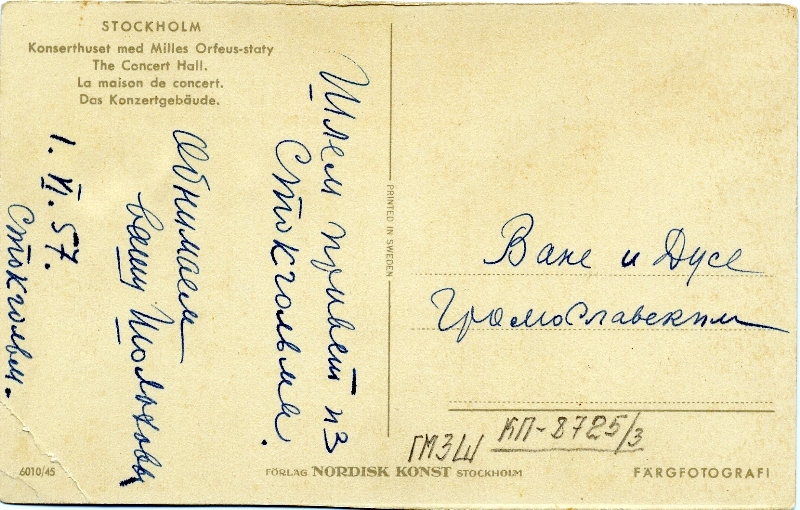 STOCKHOLM
Konserthuset med Milles Orfeus-staty
The Concert Hall.
La maison de concert.
Das Konzertgebäude.
Шлем привет из
Стокгольма.
Обнимаем
вашу
1. VI. 57.
Стокгольм.
PRINTED IN SWEDEN
Ване и Дусе
Громославским
ГМЗШ КП-8725/3
6010/45
FÖRLAG NORDISK KONST STOCKHOLM
FÄRGFOTOGRAFI